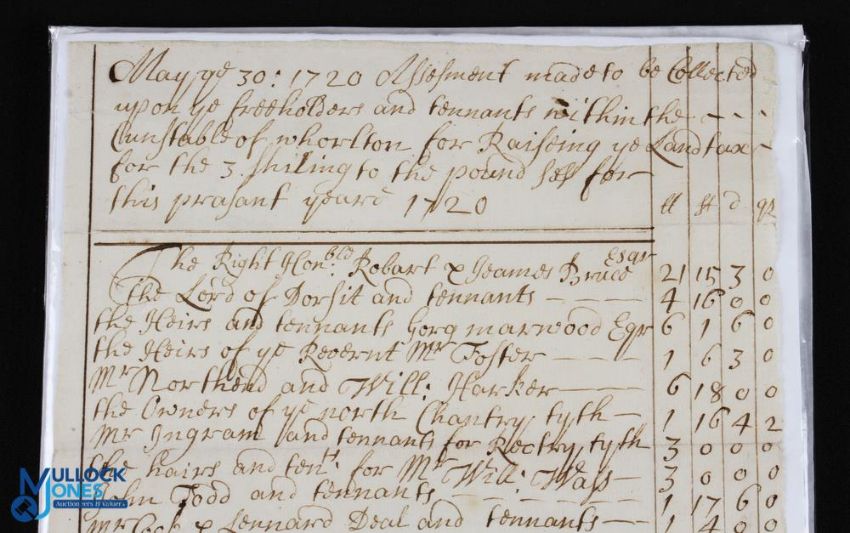 May ye 30: 1720 Assesment made to be Collected
upon ye freeholders and tennants within the - - -
Cunstable of whorlton for Raiseing ye Land tax -
for the 3 shiling to the pound for
this prasant yeare 1720 ll st d qr
The Right Honbld: Robart & Jeames Bruce Esqr 21 15 3 0
the Lord of Dorsit and tennants - - - 4 16 0 0
the Heirs and tennants Gorg marwood Eqr 6 1 6 0
the Heirs of ye Revernt Mr Foster - - - 1 6 3 0
Mr Northend and Will: Harker - - - 6 18 0 0
the Owners of ye north Chantry tyth - 1 16 4 2
Mr Ingram and tennants for Rectry tyth 3 0 0 0
the hairs and tents: for Mr Will: Wass - 3 0 0 0
John Todd and tennants - - - 1 17 6 0
Mr & Lennard Deal and tennants - - 1 4 0 0
MULLOCK
JONES
Auctioneers & Valuers